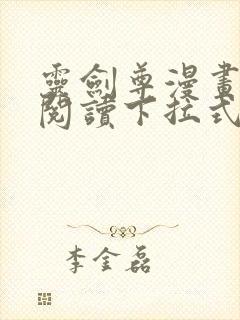 靈劍尊漫畫
閱讀下拉式
李金磊